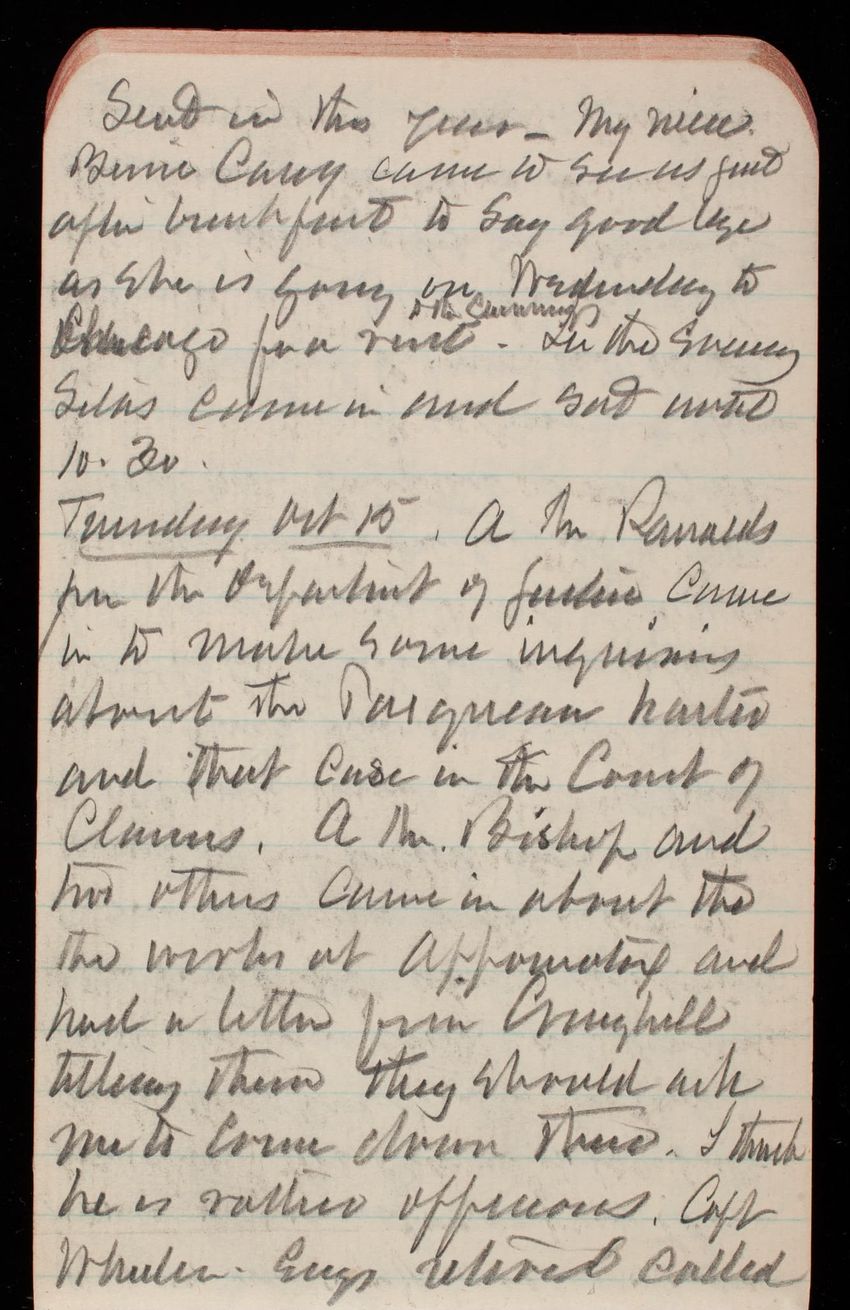 Sent in this year - My niece
Binnie Carey came to see us just
after breakfast to say good bye
as she is going on Wednesday to
to the Cummings
Chicago for a visit - In the evening
Silas came in and sat until
10.30.
Tuesday Oct 15. A Mr Randolds
from the Department of Justice came
in to make some inquiries
about the harbor
and that case in the Court of
Claims. A Mr. Bishop and
two others came in about the
the works at Appomatox and
had a letter from Craighill
telling them they should ask
me to come down there. I think
he is rather officious. Capt
Wheeler. Engs retired called